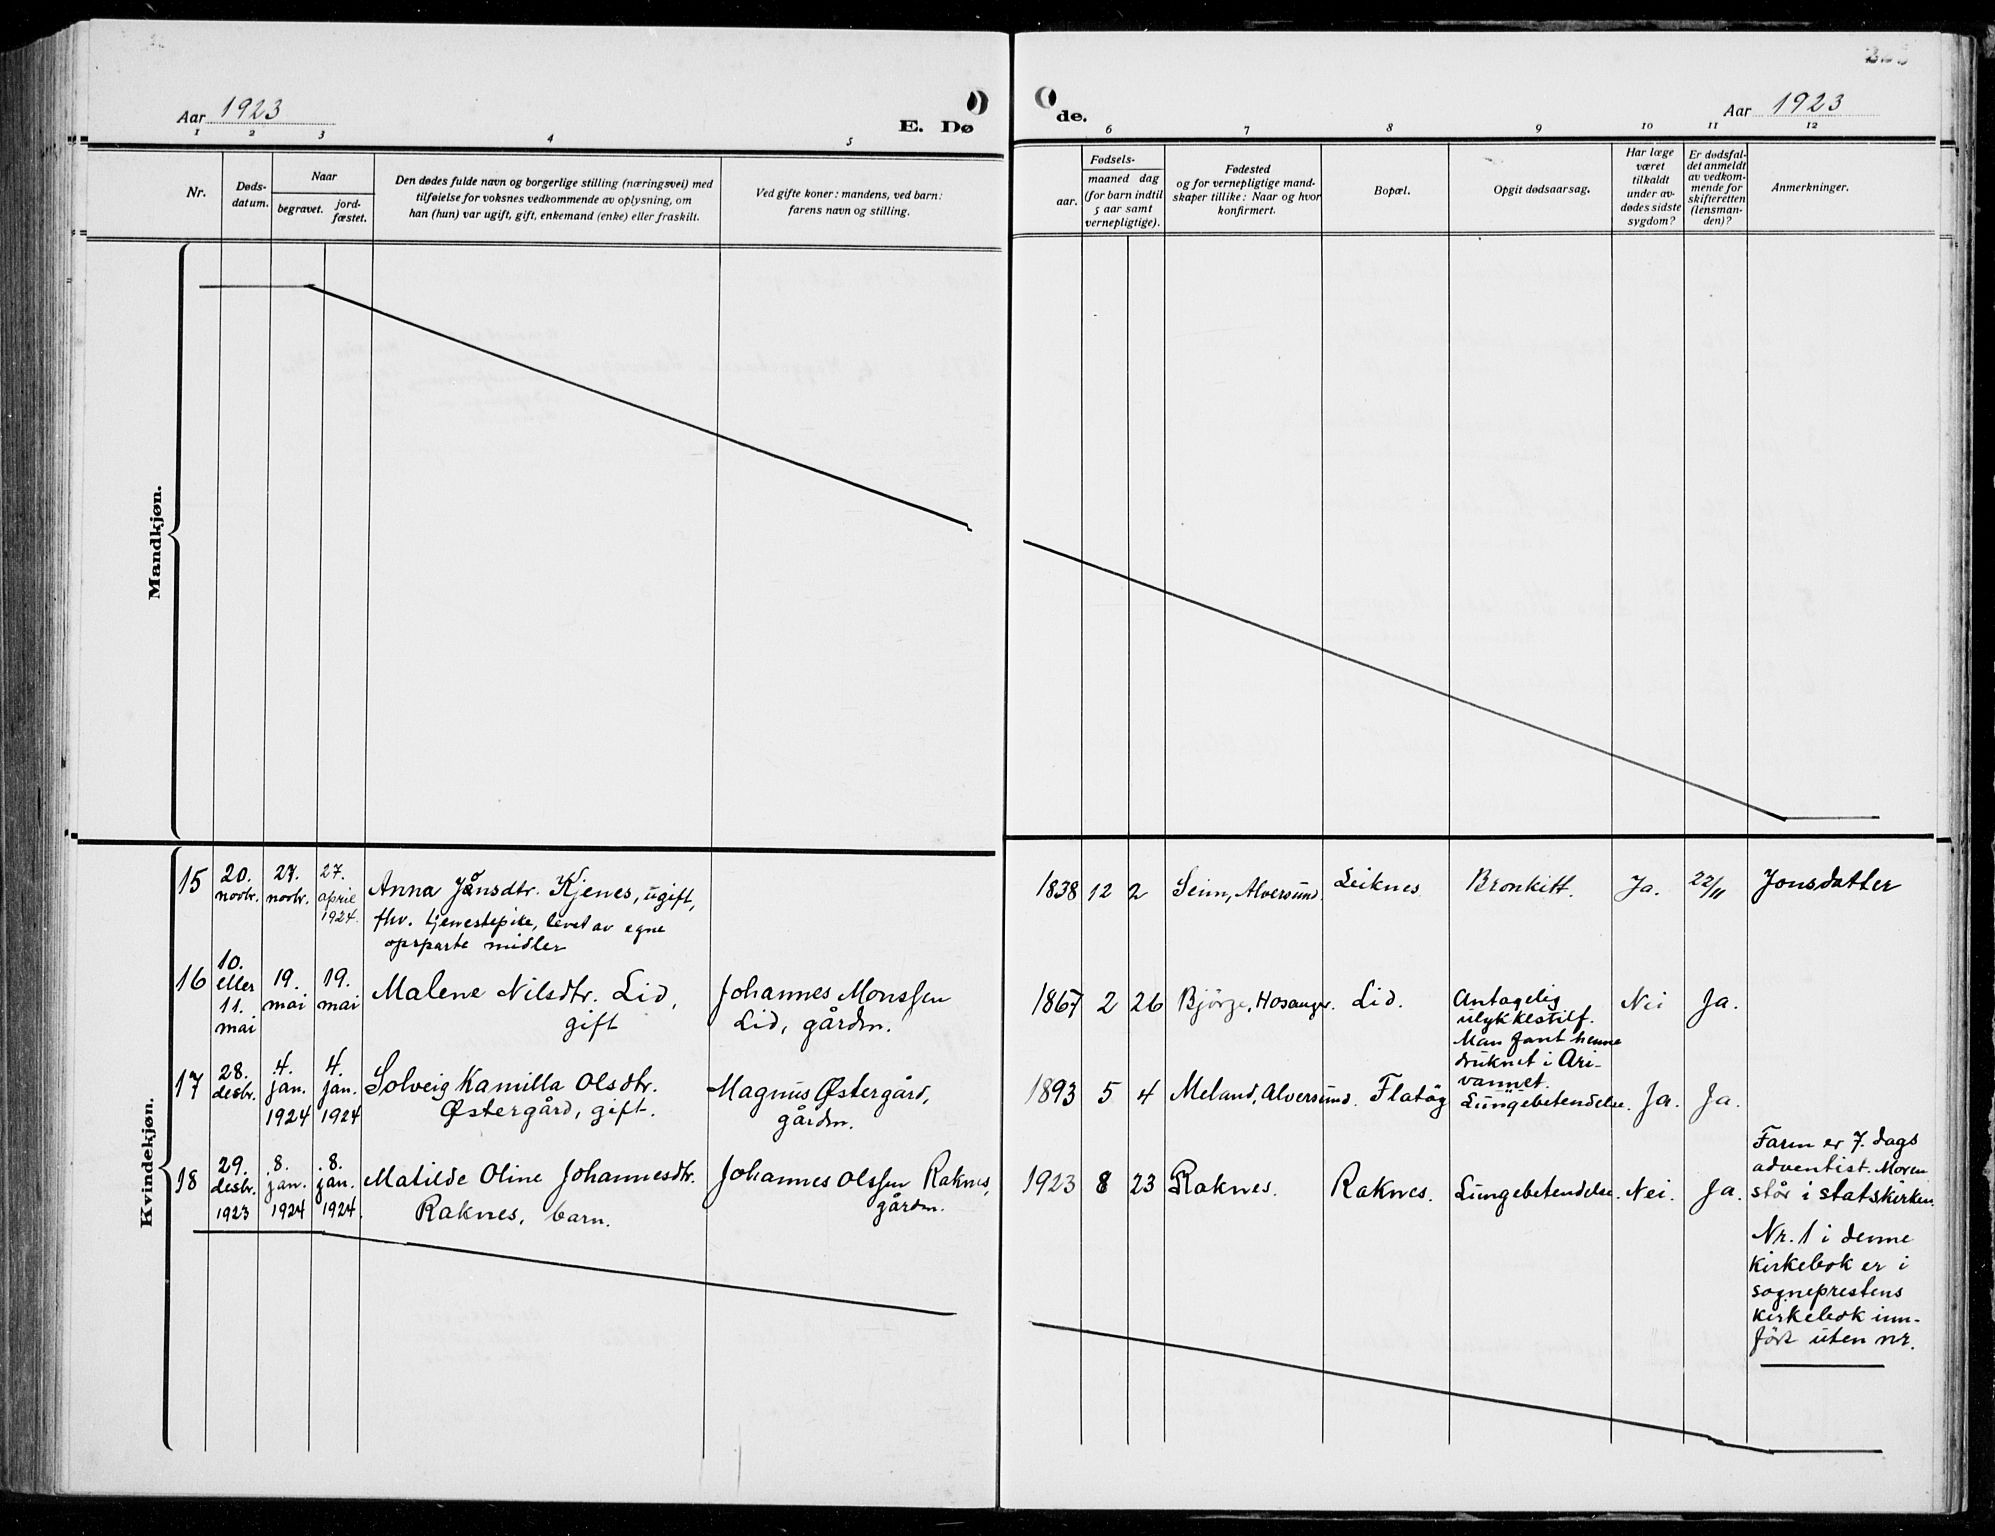 Aar 1923
E. Dø
de.
Aar 1923
1 2 3 4 5 6 7 8 9 10 11 12
Nr.
Døds-
datum.
Naar
begravet.
jord-
fæstet.
Den dødes fulde navn og borgerlige stilling (næringsvei) med
tilføielse for voksnes vedkommende av oplysning, om
han (hun) var ugift, gift, enkemand (enke) eller fraskilt.
Ved gifte koner: mandens, ved barn:
farens navn og stilling.
Fødsels-
aar.
maaned dag
(for barn indtil
5 aar samt
vernepligtige).
Fødested
og for vernepligtige mand-
skaper tillike: Naar og hvor
konfirmert.
Bopæl.
Opgit dødsaarsag.
Har læge
været
tilkaldt
under av-
dødes sidste
sygdom?
Er dødsfal-
det anmeldt
av vedkom-
mende for
skifteretten
(lensman-
den)?
Anmerkninger.
Mandkjøn.
Kvindekjøn.
15
20.
novbr.
27.
novbr.
27.
april
1924.
Anna Jånsdtr. Kjenes, ugift,
fhv. tjenestepike, levet av egne
opsparte midler
1838 12 2
Seim, Alversund.
Leiknes
Bronkitt.
Ja.
22/11
Jonsdatter
16
10.
eller
11.
mai
19.
mai
19.
mai
Malene Nilsdtr. Lid,
gift
Johannes Monssen
Lid, gårdm.
1867 2 26
Bjørge, Hosanger.
Lid.
Antagelig
ulykkestilf.
Man fant henne
druknet i Ari-
vannet.
Nei
Ja.
17
28.
desbr.
4.
jan.
1924
4.
jan.
1924
Solveig Kamilla Olsdtr.
Østergård, gift.
Magnus Østergård,
gårdm.
1893 5 4
Meland, Alversund.
Flatøy
Lungebetendelse.
Ja.
Ja.
18
29.
desbr.
1923
8.
jan.
1924
8.
jan.
1924.
Matilde Oline Johannesdtr.
Raknes, barn.
Johannes Olssen Raknes,
gårdm.
1923 8 23
Raknes.
Raknes.
Lungebetendelse.
Nei.
Ja.
Faren er 7. dags
adventist. Moren
står i statskirken.
Nr. 1 i denne
kirkebok er i
sogneprestens
kirkebok inn-
ført uten nr.